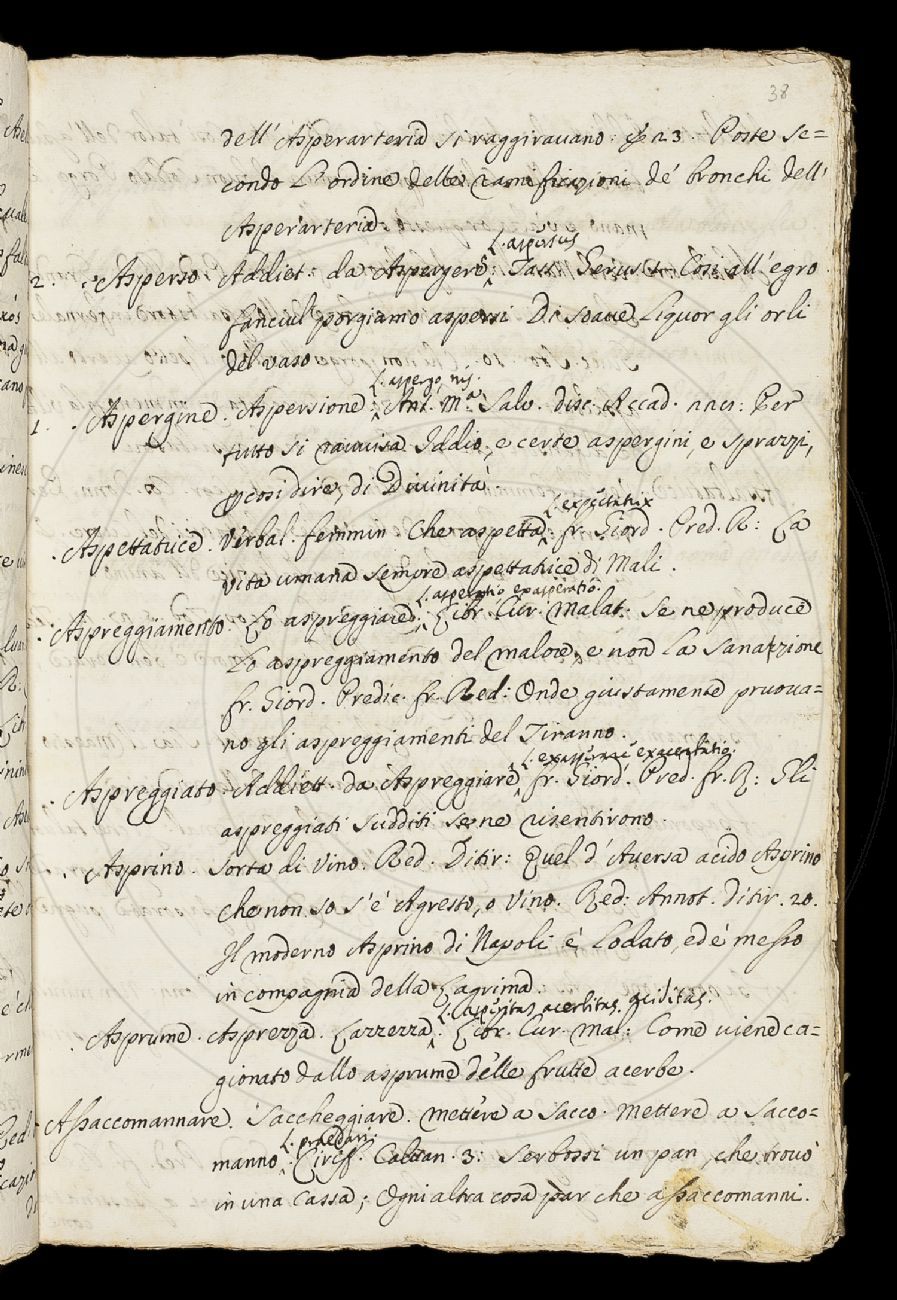 38
dell' Asperarteria si raggiravano: 23. Poste se=
condo L'ordine delle ramificazioni de' bronchi dell'
Asperarteria.
L. aspersus
2. Asperso. Addiet: da Aspergere. Tass. Gerus. 1. Cosi all' egro
fanciul porgiamo aspersi Di soave Liquor gli orli
del vaso
L. aspergo, nis.
1. Aspergine. Aspersione. Ant. M.ª Salv. disc. Accad. Per
tutto si ravvisa Iddio, e certe aspergini, e sprazzi,
p cosi dire, di Divinità.
L. expectatrix
Aspettatrice. Verbal. femmin. Che aspetta. fr. Giord. Pred. R: La
vita umana sempre aspettatrice di Mali.
L. asperatio exasperatio.
Aspreggiamento. Lo aspreggiare. Libr. Cur. Malat: Se ne produce
Lo aspreggiamento del malore, e non La sanazione
fr. Giord. Predic. fr. Red: Onde giustamente pruova=
no gli aspreggiamenti del Tiranno.
L. exacerbatio.
Aspreggiato. Addiett. da Aspreggiare. fr. Giord. Pred. fr. R: Gli
aspreggiati sudditi se ne risentirono.
Asprino. Sorta di Vino. Red. Ditir: Quel d'Aversa acido Asprino
che non so s'è Agresto, o Vino. Red: Annot. Ditir. 20.
Il moderno Asprino di Napoli è Lodato, ed è messo
in compagnia della Lagrima.
L. asperitas acerbitas.
Asprume. Asprezza. Lazzezza. Libr. Cur. Mal: Come viene ca=
gionato dallo asprume delle frutte acerbe.
Assaccomannare. Saccheggiare. Mettere a Sacco. Mettere a Sacco=
L. praedari.
manno. Ciriff. Calvan. 3: Serbossi un pan, che trovò
in una Cassa; Ogni altra cosa par che assaccomanni.